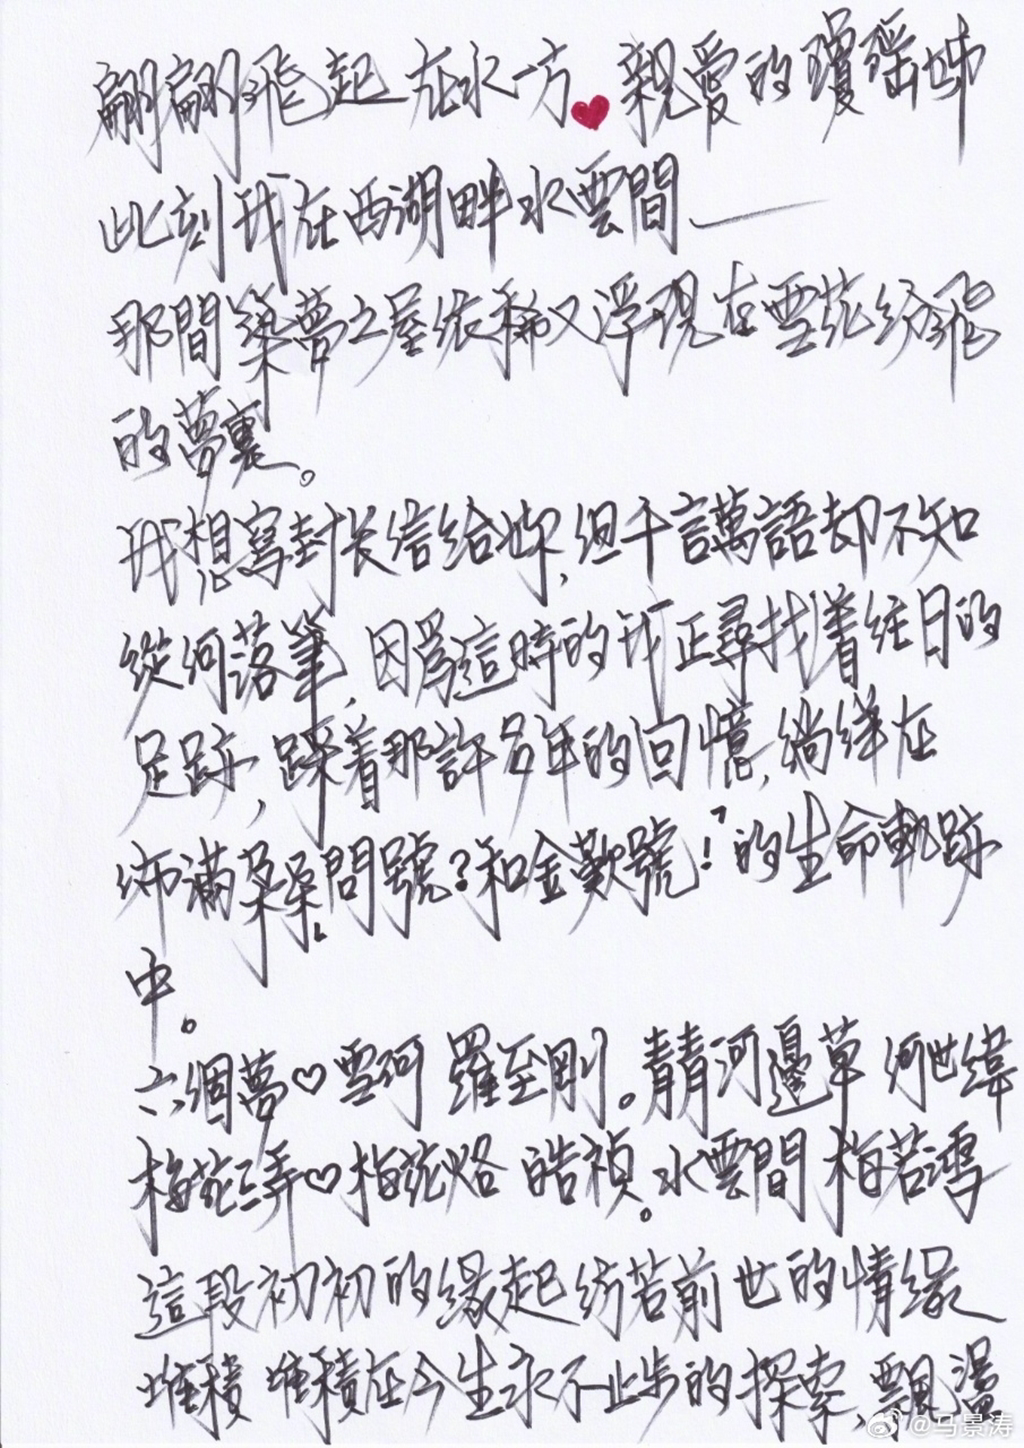 翩翩飛起 在水一方♥親愛的瓊瑤姊
此刻我在西湖畔水雲間——
那間築夢之屋依稀又浮現在雪花紛飛
的夢裏。
我想寫封长信給妳,但千言萬語却不知
從何落筆,因爲這時的我正尋找着往日的
足跡,踩着那許多年的回憶,徜徉在
佈滿朵朵問號?和金歎號!的生命軌跡
中。
六個夢♡雪珂 羅至剛。青青河邊草 何世緯
梅花三弄♡梅花烙 皓禎。水雲間 梅若鴻
這段初初的緣起彷若前世的情缘
堆積 堆積在今生永不止步的探索,飄盪
@马景涛